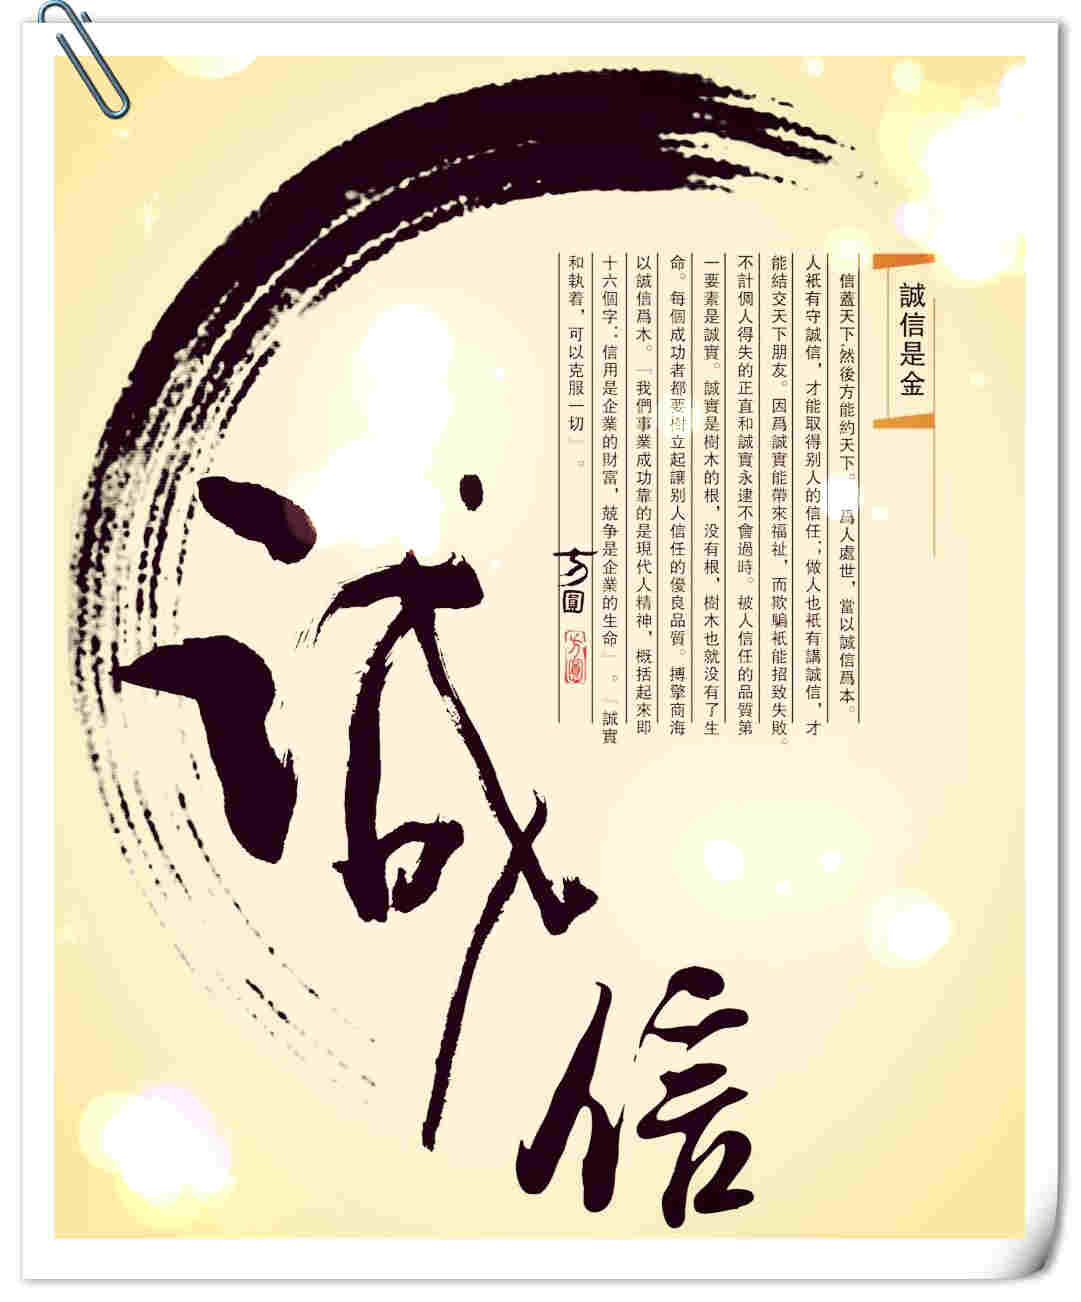 誠信是金
信蓋天下,然後方能約天下。爲人處世，當以誠信爲本。
人祇有守誠信，才能取得别人的信任；做人也祇有講誠信，才
能結交天下朋友。因爲誠實能帶來福祉，而欺騙祇能招致失敗。
不計個人得失的正直和誠實永逮不會過時。被人信任的品質第
一要素是誠實。誠實是樹木的根，没有根，樹木也就没有了生
命。每個成功者都要樹立起讓别人信任的優良品質。搏擎商海
以誠信爲木。『我們事業成功靠的是現代人精神，概括起來即
十六個字：信用是企業的財富，兢争是企業的生命』。『誠實
和執着，可以克服一切』。
方圓
方圓
誠
信